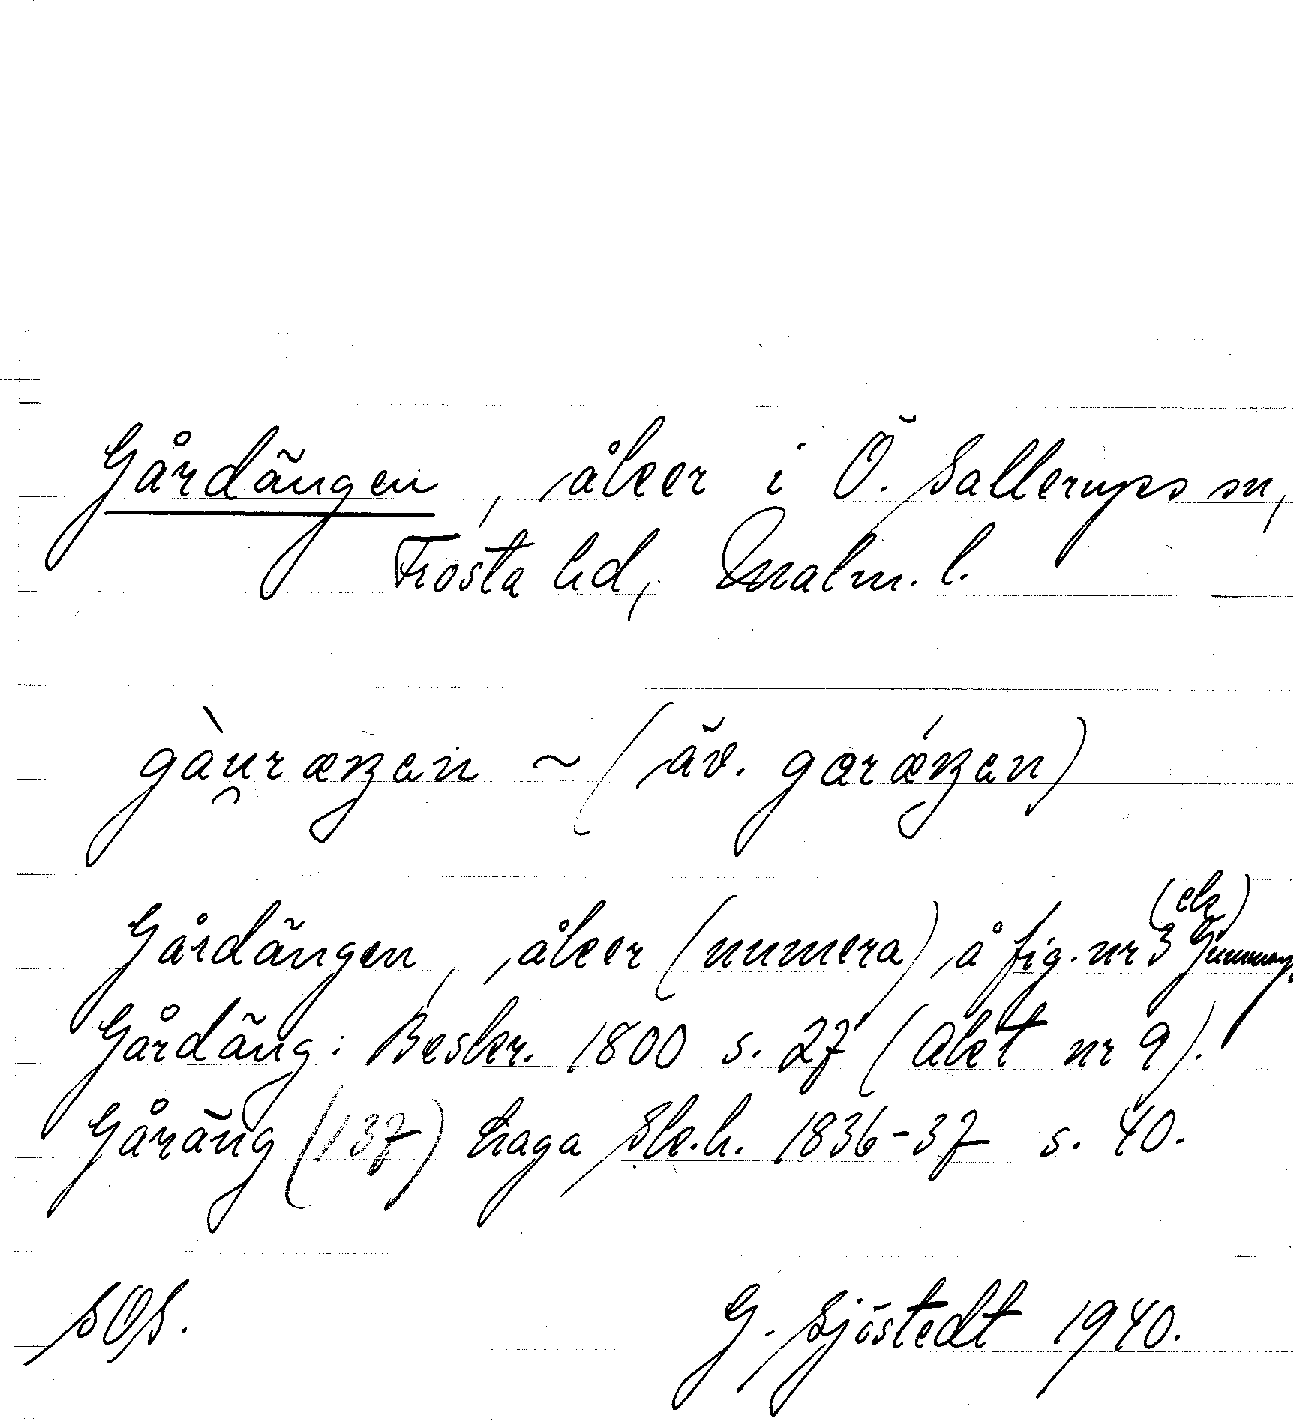 Gårdängen, åker i Ö. Sallerups sn,
Frosta hd, Malm. l.
gàu̯ræŋan ~ (äv. garǽŋan)
Gårdängen, åker (numera) å fig. nr 3 (ek)
Gårdäng: Beskr. 1800 s. 27 (Akt nr 9).
Gåräng (137) haga Sk.h. 1836-37 s. 40.
SOS. G. Sjöstedt 1940.